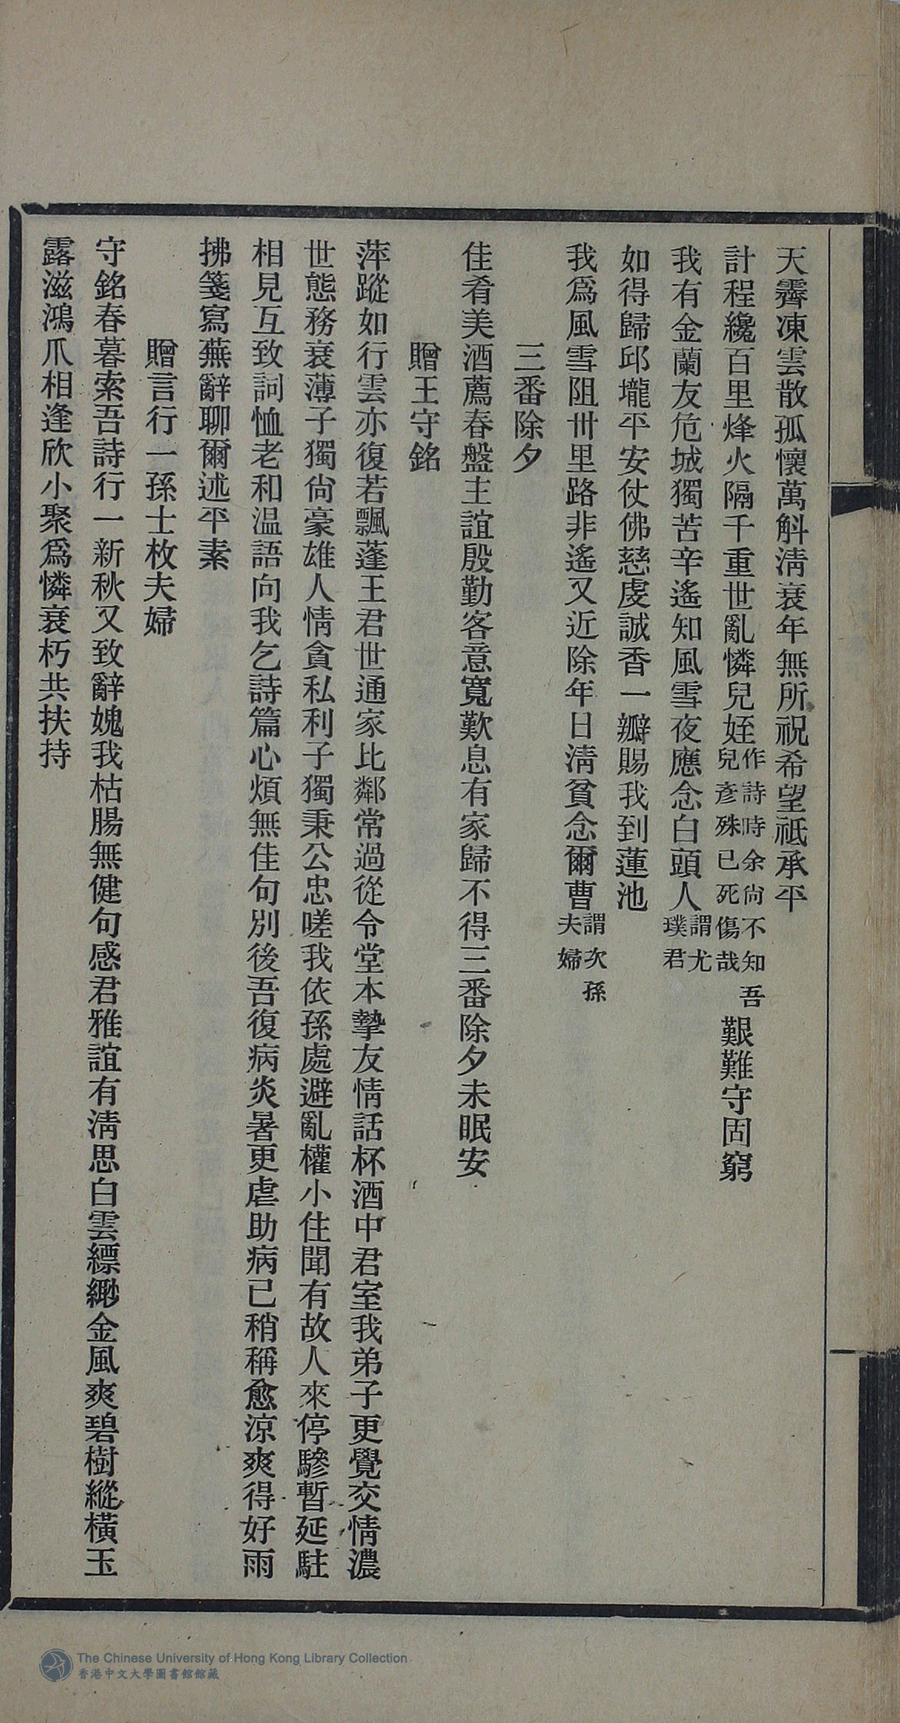 天霽凍雲散孤懷萬斛淸衰年無所祝希望祇承平
計程纔百里烽火隔千重世亂憐兒姪作詩時余尙不知吾兒彥殊已死傷哉艱難守固窮
我有金蘭友危城獨苦辛遙知風雪夜應念白頭人謂尤璞君
如得歸邱壠平安仗佛慈虔誠香一瓣賜我到蓮池
我爲風雪阻卅里路非遙又近除年日淸貧念爾曹謂次孫夫婦
三番除夕
佳肴美酒薦春盤主誼殷勤客意寬歎息有家歸不得三番除夕未眠安
贈王守銘
萍蹤如行雲亦復若飄蓬王君世通家比鄰常過從令堂本摯友情話杯酒中君室我弟子更覺交情濃
世態務衰薄子獨尙豪雄人情貪私利子獨秉公忠嗟我依孫處避亂權小住聞有故人來停驂暫延駐
相見互致詞恤老和温語向我乞詩篇心煩無佳句別後吾復病炎暑更虐助病已稍稱愈涼爽得好雨
拂箋寫蕪辭聊爾述平素
贈言行一孫士枚夫婦
守銘春暮索吾詩行一新秋又致辭媿我枯腸無健句感君雅誼有淸思白雲縹緲金風爽碧樹縱橫玉
露滋鴻爪相逢欣小聚爲憐衰朽共扶持
The Chinese University of Hong Kong Library Collection
香港中文大學圖書館館藏